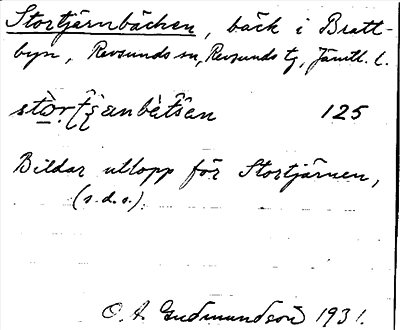 Stortjärnbäcken, bäck i Bratt-
byn, Revsunds sn, Revsunds tg, Jämtl. l.
125
Bildar utlopp för Stortjärnen,
(s.d.s.).
O. A. Gudmundson 1931.